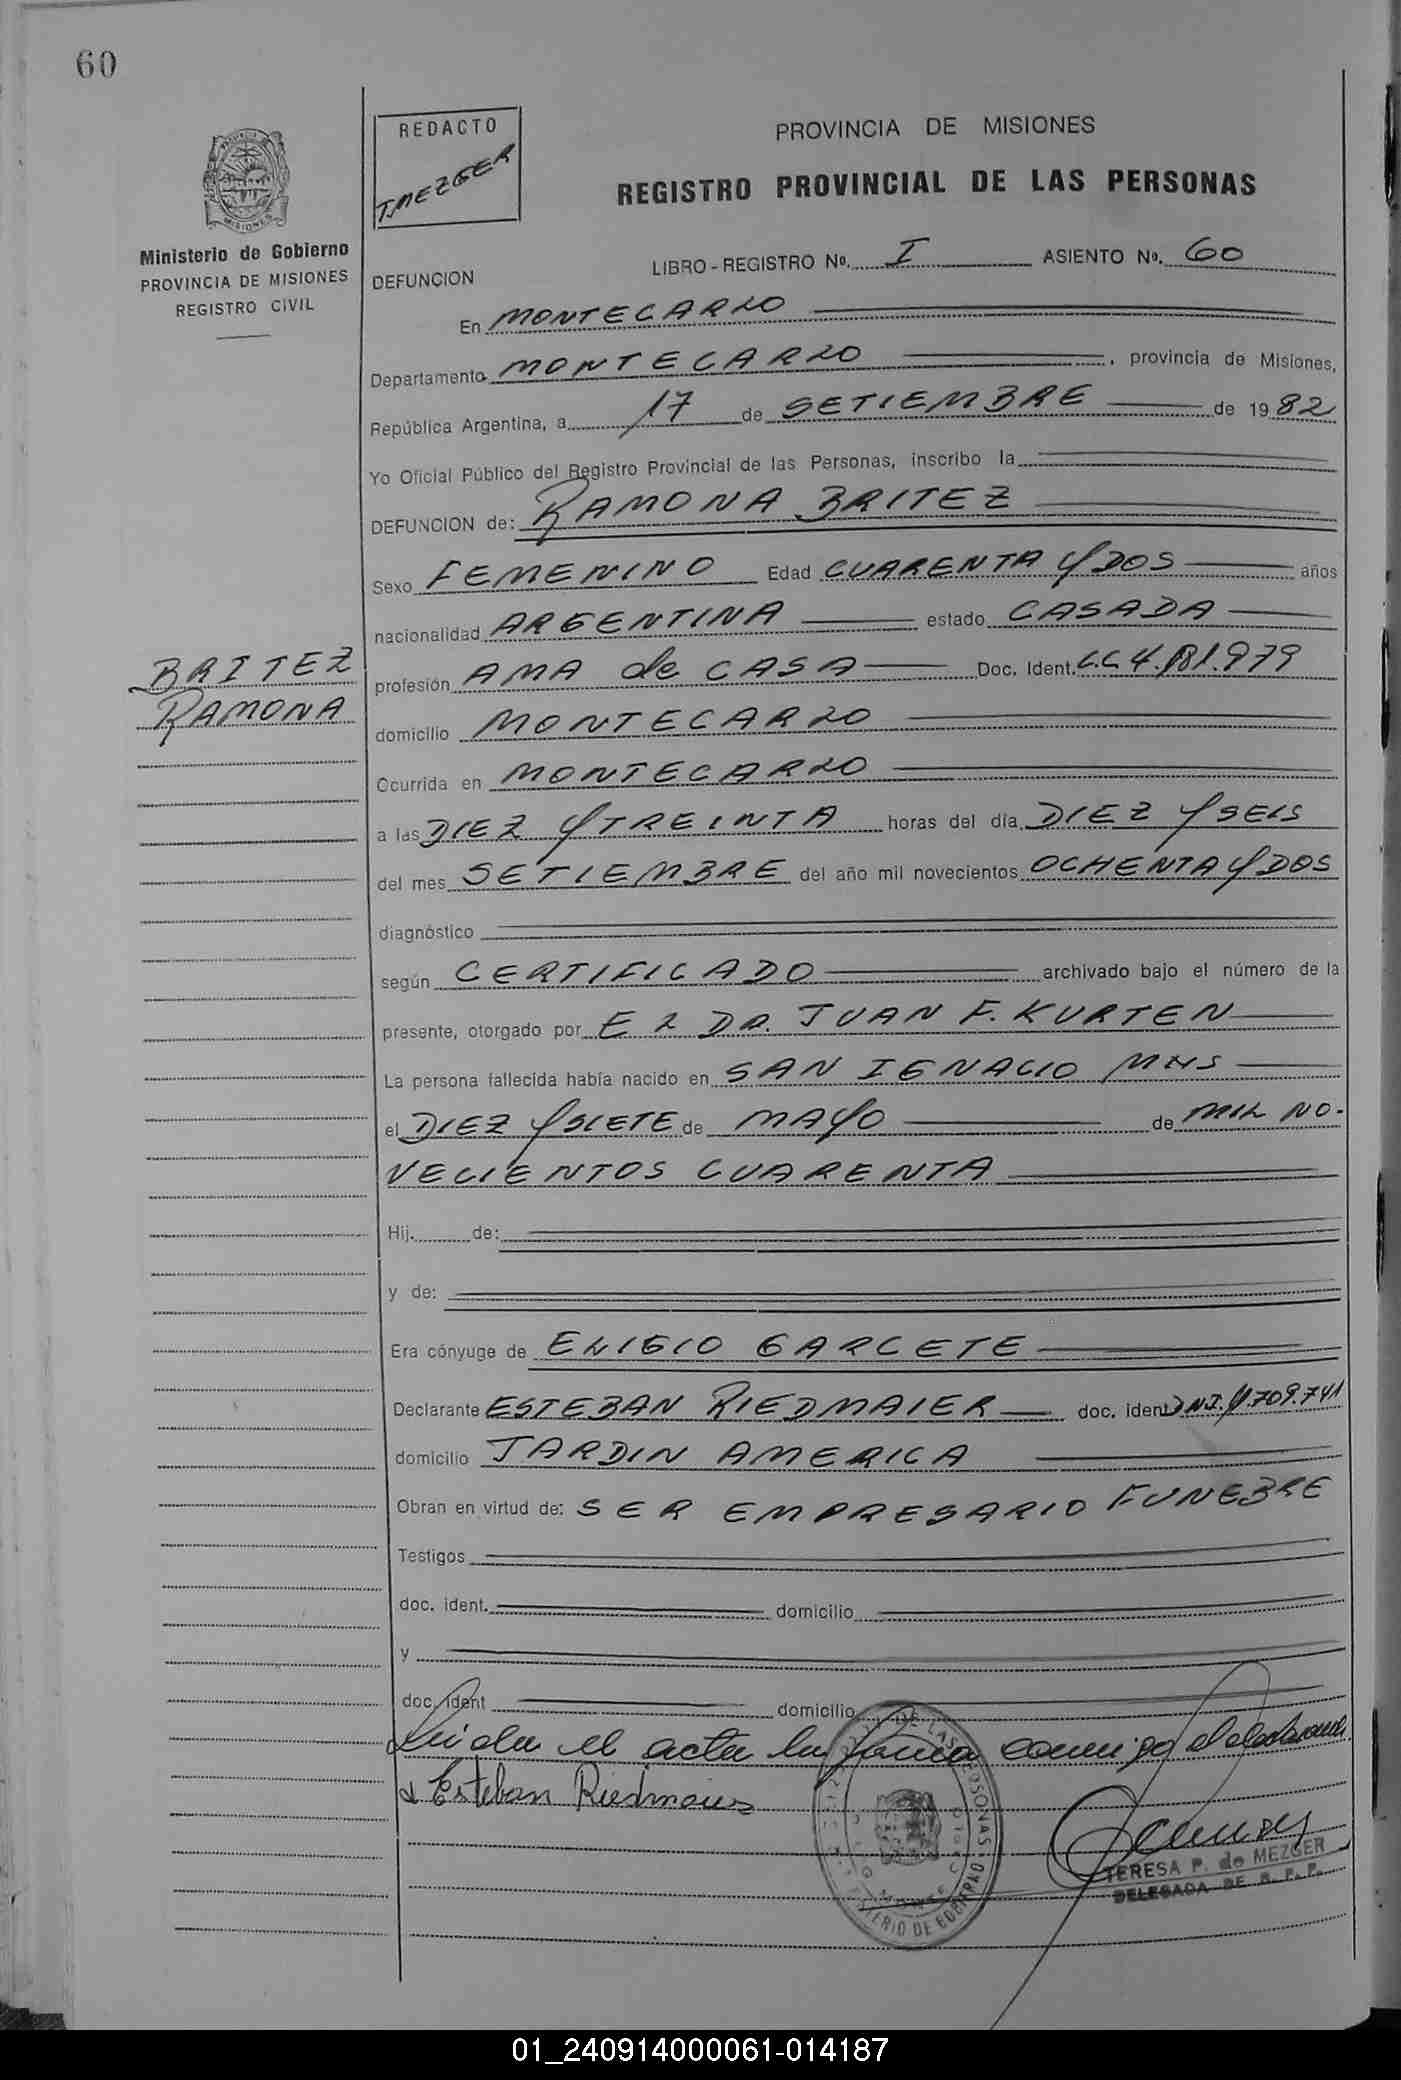 60
REDACTO
T. MEZGER
PROVINCIA DE MISIONES
REGISTRO PROVINCIAL DE LAS PERSONAS
Ministerio de Gobierno
PROVINCIA DE MISIONES
REGISTRO CIVIL
MISIONES
LIBRO - REGISTRO Nº. I ASIENTO Nº. 60
DEFUNCION
En MONTECARLO
Departamento MONTECARLO, provincia de Misiones,
República Argentina, a 17 de SETIEMBRE de 1982
Yo Oficial Público del Registro Provincial de las Personas, inscribo la
DEFUNCION de: RAMONA BRITEZ
Sexo FEMENINO Edad CUARENTA Y DOS años
nacionalidad ARGENTINA estado CASADA
BRITEZ
RAMONA
profesión AMA de CASA Doc. Ident. L.C. 4.181.979
domicilio MONTECARLO
Ocurrida en MONTECARLO
a las DIEZ Y TREINTA horas del día DIEZ Y SEIS
del mes SETIEMBRE del año mil novecientos OCHENTA Y DOS
diagnóstico
según CERTIFICADO archivado bajo el número de la
presente, otorgado por EL DR. JUAN F. KURTEN
La persona fallecida había nacido en SAN IGNACIO MNS
el DIEZ Y SIETE de MAYO de MIL NO-
VECIENTOS CUARENTA
Hij. de:
y de:
Era cónyuge de ELIGIO GARCETE
Declarante ESTEBAN RIEDMAIER doc. ident D.N.I. 4.709.741
domicilio JARDIN AMERICA
Obran en virtud de: SER EMPRESARIO FUNEBRE
Testigos
doc. ident. domicilio
y
doc. ident domicilio
Leida el acta la firma conmigo el declarante
Esteban Riedmaier
TERESA P. de MEZGER
DELEGADA DE R. P. P.
01_240914000061-014187